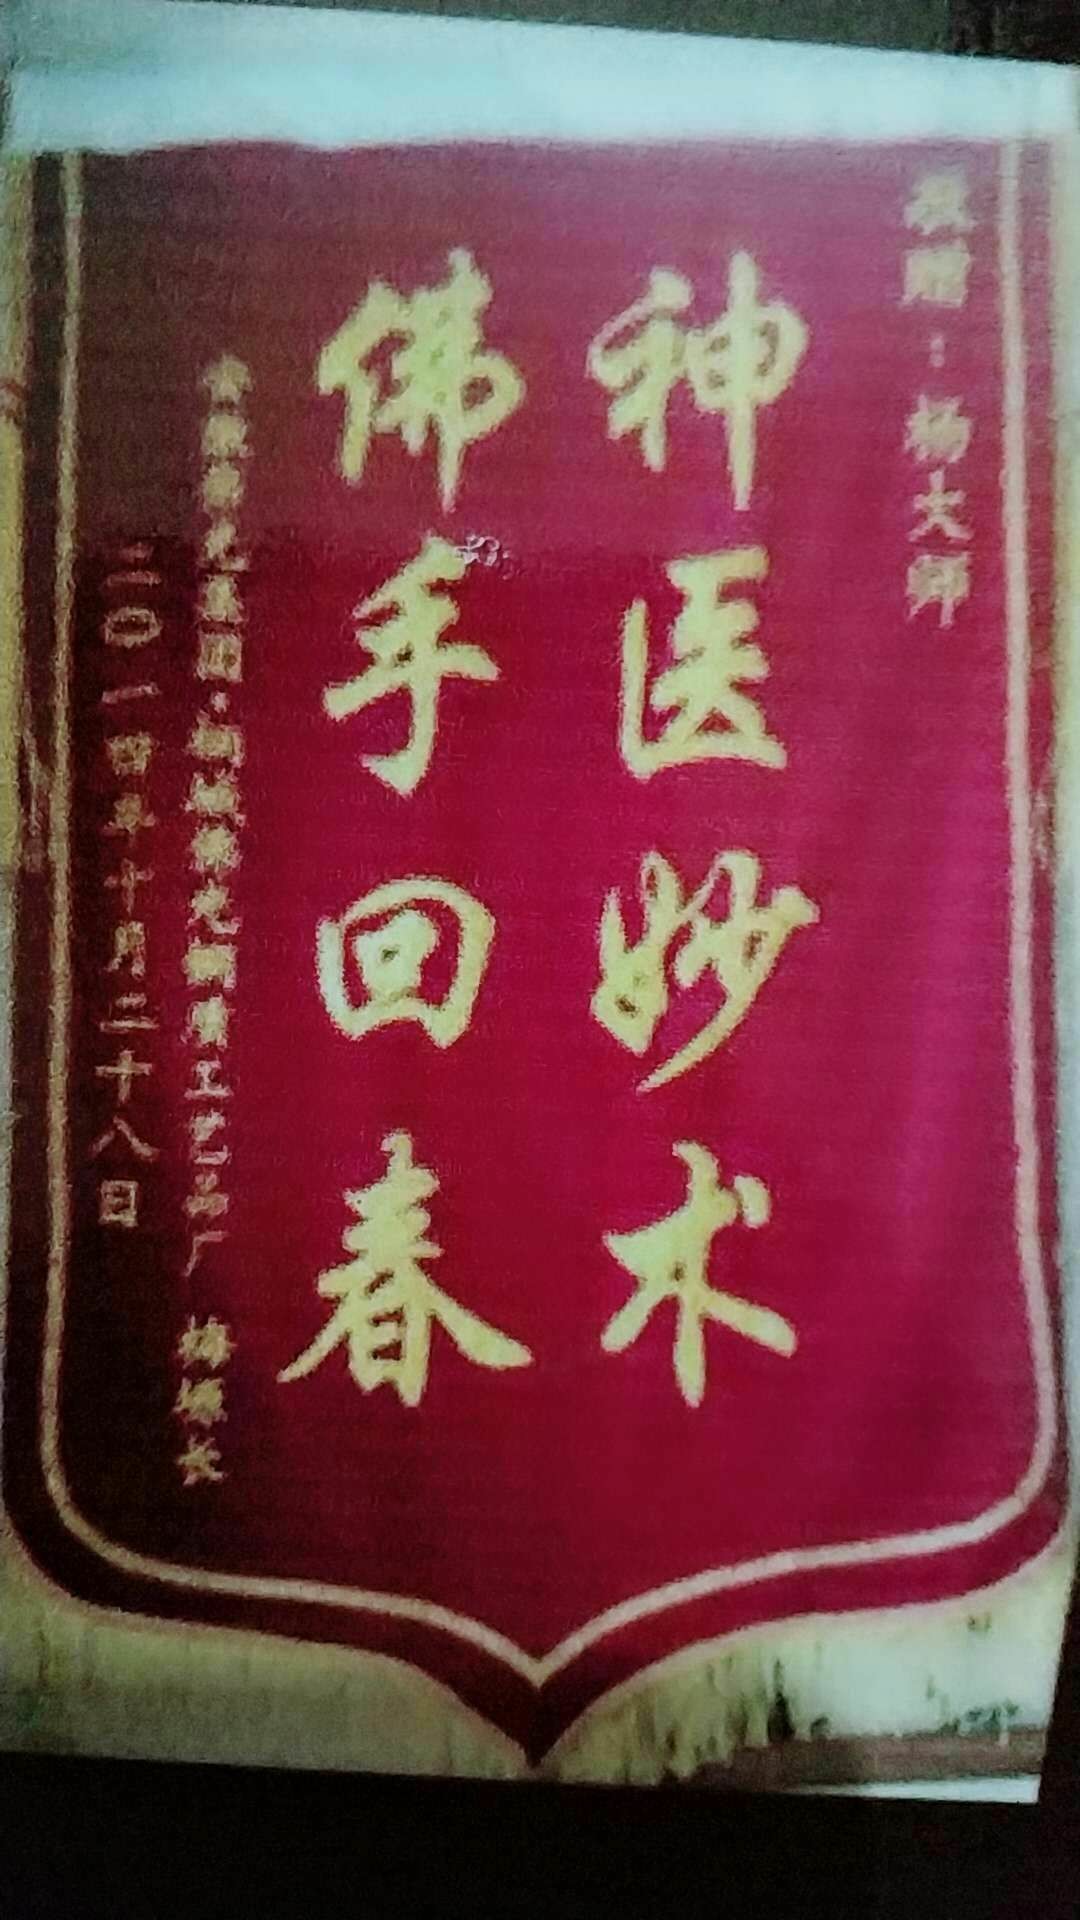 敬赠：杨大师
神医妙术
佛手回春
工艺品厂
二〇一四年十月二十八日